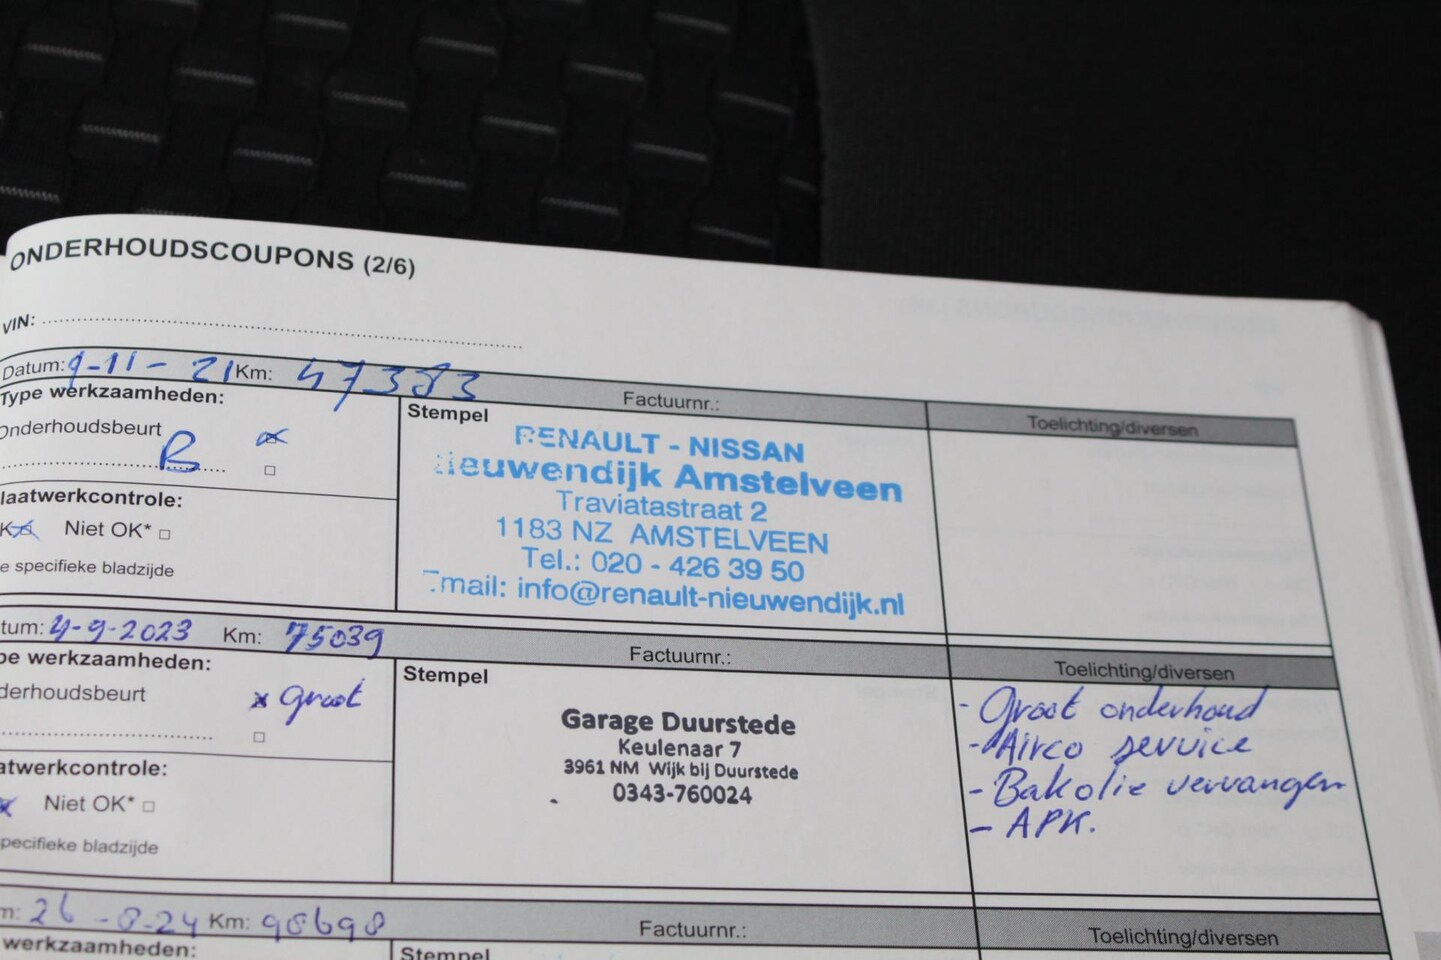 ONDERHOUDSCOUPONS (2/6)
VIN:
Datum: 9-11-21 Km: 47383 Factuurnr.: Toelichting/diversen
Type werkzaamheden:
Onderhoudsbeurt
B
Stempel
RENAULT - NISSAN
Nieuwendijk Amstelveen
Traviatastraat 2
1183 NZ AMSTELVEEN
Tel.: 020 - 426 39 50
Email: info@renault-nieuwendijk.nl
laatwerkcontrole:
K Niet OK*
e specifieke bladzijde
tum: 4-9-2023 Km: 75039 Factuurnr.: Toelichting/diversen
pe werkzaamheden:
derhoudsbeurt x groot
Stempel
Garage Duurstede
Keulenaar 7
3961 NM Wijk bij Duurstede
0343-760024
- Groot onderhoud
- Airco service
- Bakolie vervangen
- APK.
atwerkcontrole:
x Niet OK*
pecifieke bladzijde
m: 26-8-24 Km: 98698 Factuurnr.: Toelichting/diversen
werkzaamheden:
Stempel